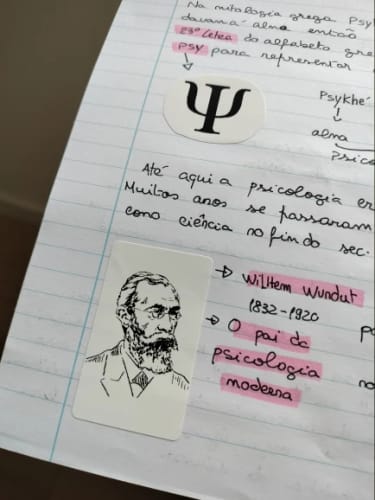 Na mitologia grega Psy
davam á alma então
23ª letra do alfabeto gre
psy para representar
Ψ
Psykhé
alma
Psico
Até aqui a psicologia er
Muitos anos se passaram
como ciência no fim do sec.
Wilhem Wundt
1832-1920
O pai da
psicologia
moderna
no